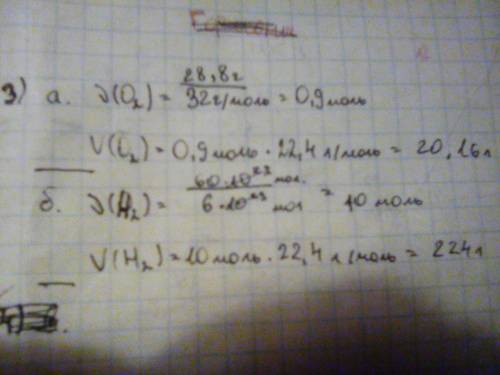 3) а. ν(O₂) = 28,8г / 32г/моль = 0,9моль
V(O₂) = 0,9моль · 22,4 л/моль = 20,16л
б. ν(H₂) = 60·10²³ мол. / 6·10²³ мол = 10 моль
V(H₂) = 10моль · 22,4 л/моль = 224л